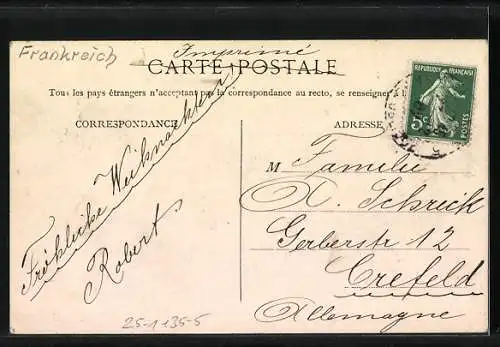 Frankreich
Imprimé
CARTE POSTALE
Tous les pays étrangers n'acceptant pas la correspondance au recto, se renseigner à
CORRESPONDANCE
ADRESSE
REPUBLIQUE FRANÇAISE
5c
POSTES
Fröhliche Weihnachten
Robert
M Familie
A. Schrick
Gerberstr 12
Crefeld
Allemagne
25-1135-5